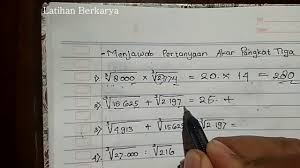 Latihan Berkarya
- Menjawab Pertanyaan Akar Pangkat Tiga
1) ³√8000 × ³√2774 = 20 × 14 = 280
2) ³√15625 + ³√2197 = 25 +
3) ³√4913 + ³√15625 ³√2197 =
³√27.000 : ³√216